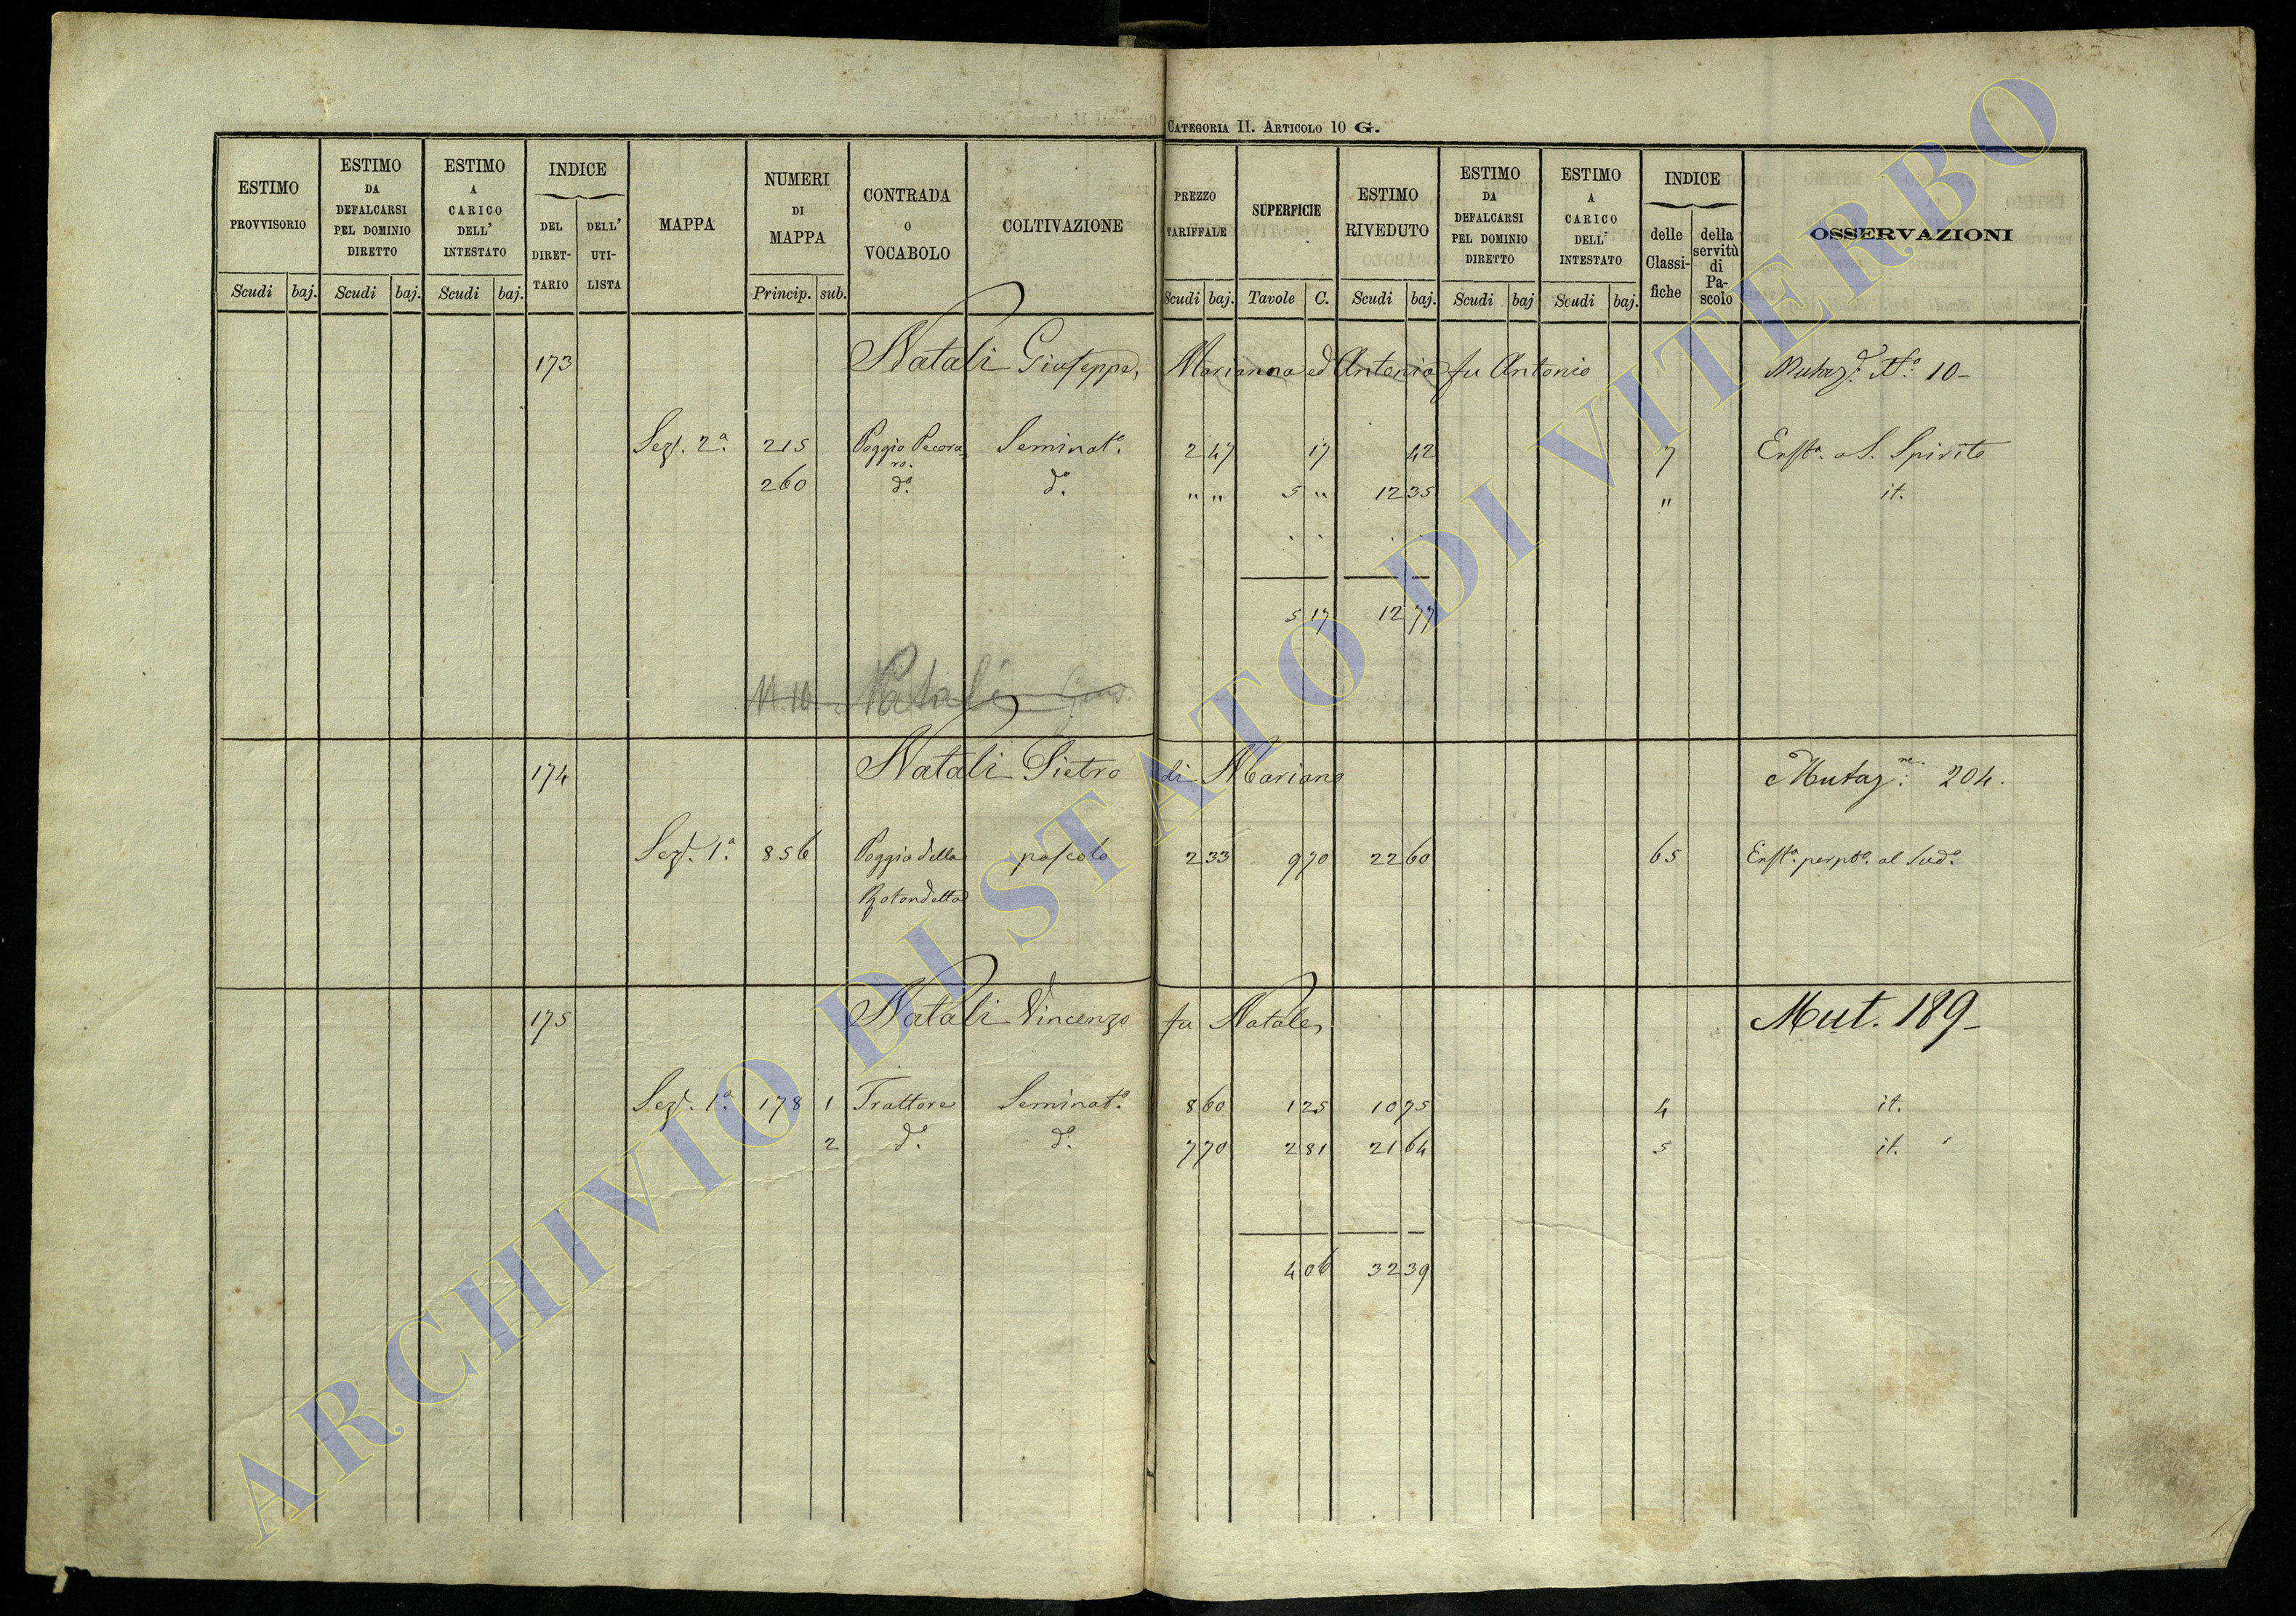 CATEGORIA II. ARTICOLO 10 G.
ESTIMO PROVVISORIO Scudi baj.
ESTIMO DA DEFALCARSI PEL DOMINIO DIRETTO Scudi baj.
ESTIMO A CARICO DELL' INTESTATO Scudi baj.
INDICE DEL DIRET- TARIO DELL' UTI- LISTA
MAPPA
NUMERI DI MAPPA Princip. sub.
CONTRADA O VOCABOLO
COLTIVAZIONE
PREZZO TARIFFALE Scudi baj.
SUPERFICIE Tavole C.
ESTIMO RIVEDUTO Scudi baj.
ESTIMO DA DEFALCARSI PEL DOMINIO DIRETTO Scudi baj
ESTIMO A CARICO DELL' INTESTATO Scudi baj.
INDICE delle Classi- fiche della servitù di Pa- scolo
OSSERVAZIONI
173 Natali Giuseppe, Marianna ed Antonio fu Antonio Mutaz.e N.o 10-
Sez. 2a. 215 Poggio Pecora- Seminat.o 2 47 17 42 7 Enft.a a S. Spirito
ro.
260 d.o d.o " " 5 " 12 35 " it.
5 17 12 77
N. 10 Natali Gius.
174 Natali Pietro di Mariano Mutaz.ne 204.
Sez. 1a. 856 Poggio della pascolo 2 33 9 70 22 60 65 Enft.a perpt.a al Sud.o
Rotondetta
175 Natali Vincenzo fu Natale, Mut. 189-
Sez. 1a. 178 1 Trattore Seminat.o 8 60 1 25 10 75 4 it.
2 d.o d.o 7 70 2 81 21 64 5 it.
4 06 32 39
ARCHIVIO DI STATO DI VITERBO